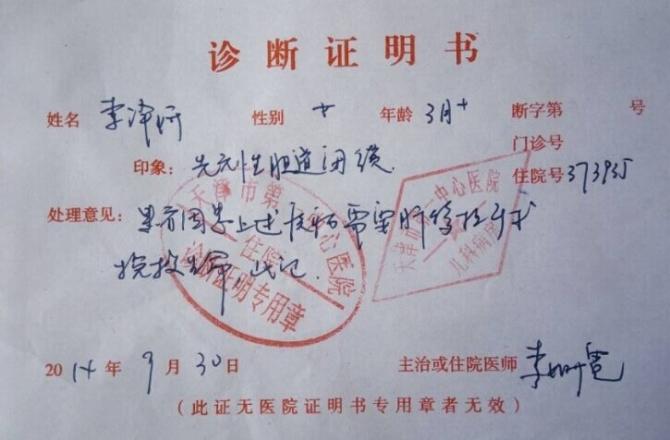 诊断证明书
姓名 李泽妍 性别 女 年龄 3月+ 断字第 号
门诊号
印象：先天性胆道闭锁 住院号373935
处理意见：患者因患上述疾病需要肝移植手术
挽救生命，此记.
天津市第一中心医院
住院
诊断证明专用章
天津市第一中心医院
儿科病房
2014年9月30日 主治或住院医师
(此证无医院证明书专用章者无效)